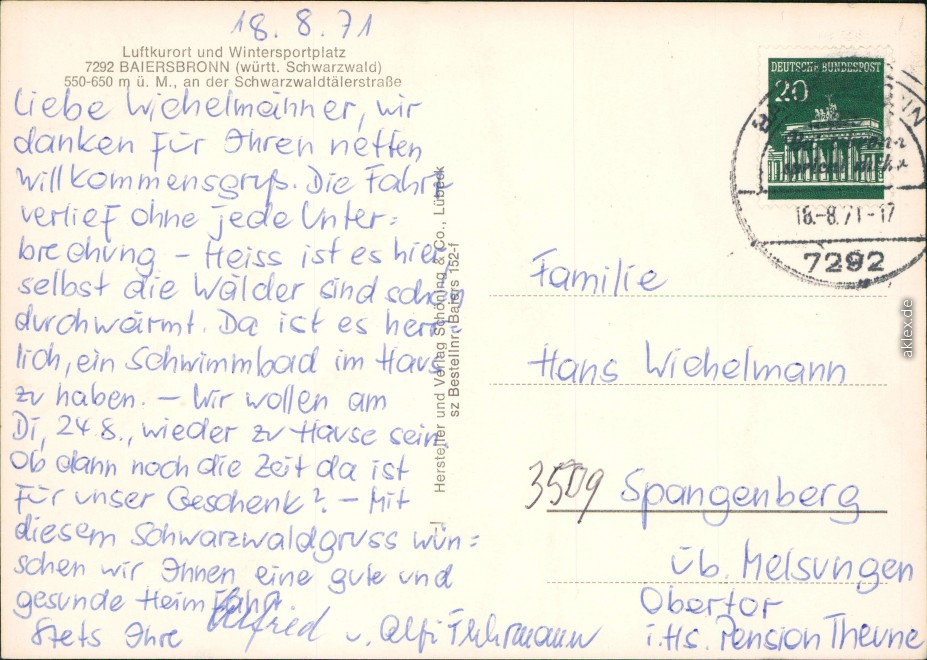 18.8.71
Luftkurort und Wintersportplatz
7292 BAIERSBRONN (württ. Schwarzwald)
550-650 m ü. M., an der Schwarzwaldtälerstraße
Liebe Wichelmänner, wir
danken für Ihren netten
Willkommensgruß. Die Fahrt
verlief ohne jede Unter=
brechung - Heiss ist es hier
selbst die Wälder sind schon
durchwärmt. Da ist es herr=
lich, ein Schwimmbad im Haus
zu haben. - Wir wollen am
Di, 24.8., wieder zu Hause sein.
Ob dann noch die Zeit da ist
für unser Geschenk? - Mit
diesem Schwarzwaldgruss wün=
schen wir Ihnen eine gute und
gesunde Heimfahrt
Stets Ihre
u.
Hersteller und Verlag Schöning & Co., Lübeck
sz Bestellnr. Baiers 152-f
DEUTSCHE BUNDESPOST
20
18.-8.71-17
7292
Familie
Hans Wichelmann
3509 Spangenberg
üb. Melsungen
Obertor
i. Hs. Pension Theune
aklex.de